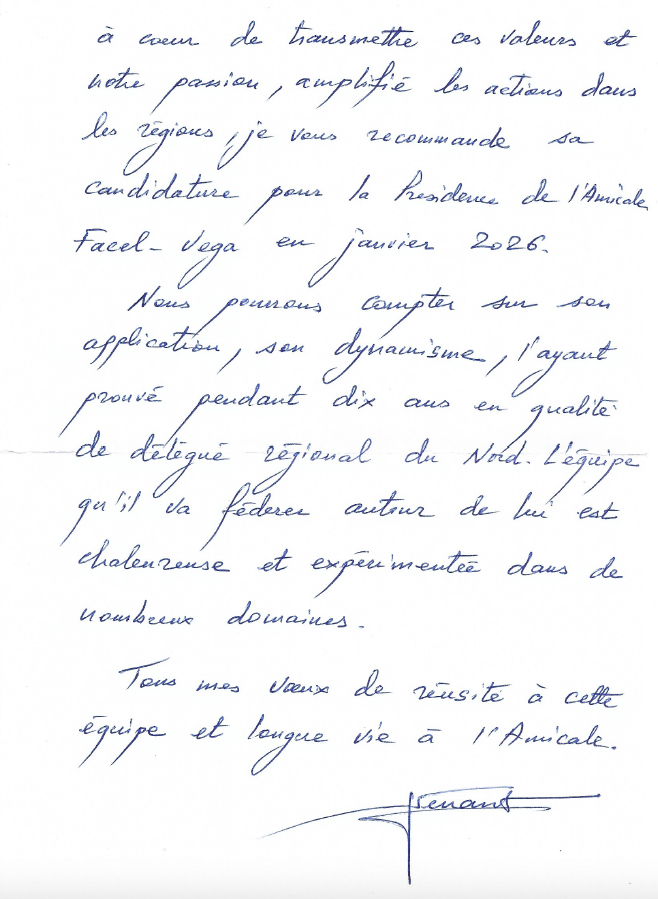 à cœur de transmettre ces valeurs et
notre passion, amplifié les actions dans
les régions, je vous recommande sa
candidature pour la Présidence de l'Amicale
Facel-Vega en janvier 2026.
Nous pourrons compter sur son
application, son dynamisme, l'ayant
prouvé pendant dix ans en qualité
de délégué régional du Nord. L'équipe
qu'il va fédérer autour de lui est
chaleureuse et expérimentée dans de
nombreux domaines.
Tous mes vœux de réussite à cette
équipe et longue vie à l'Amicale.